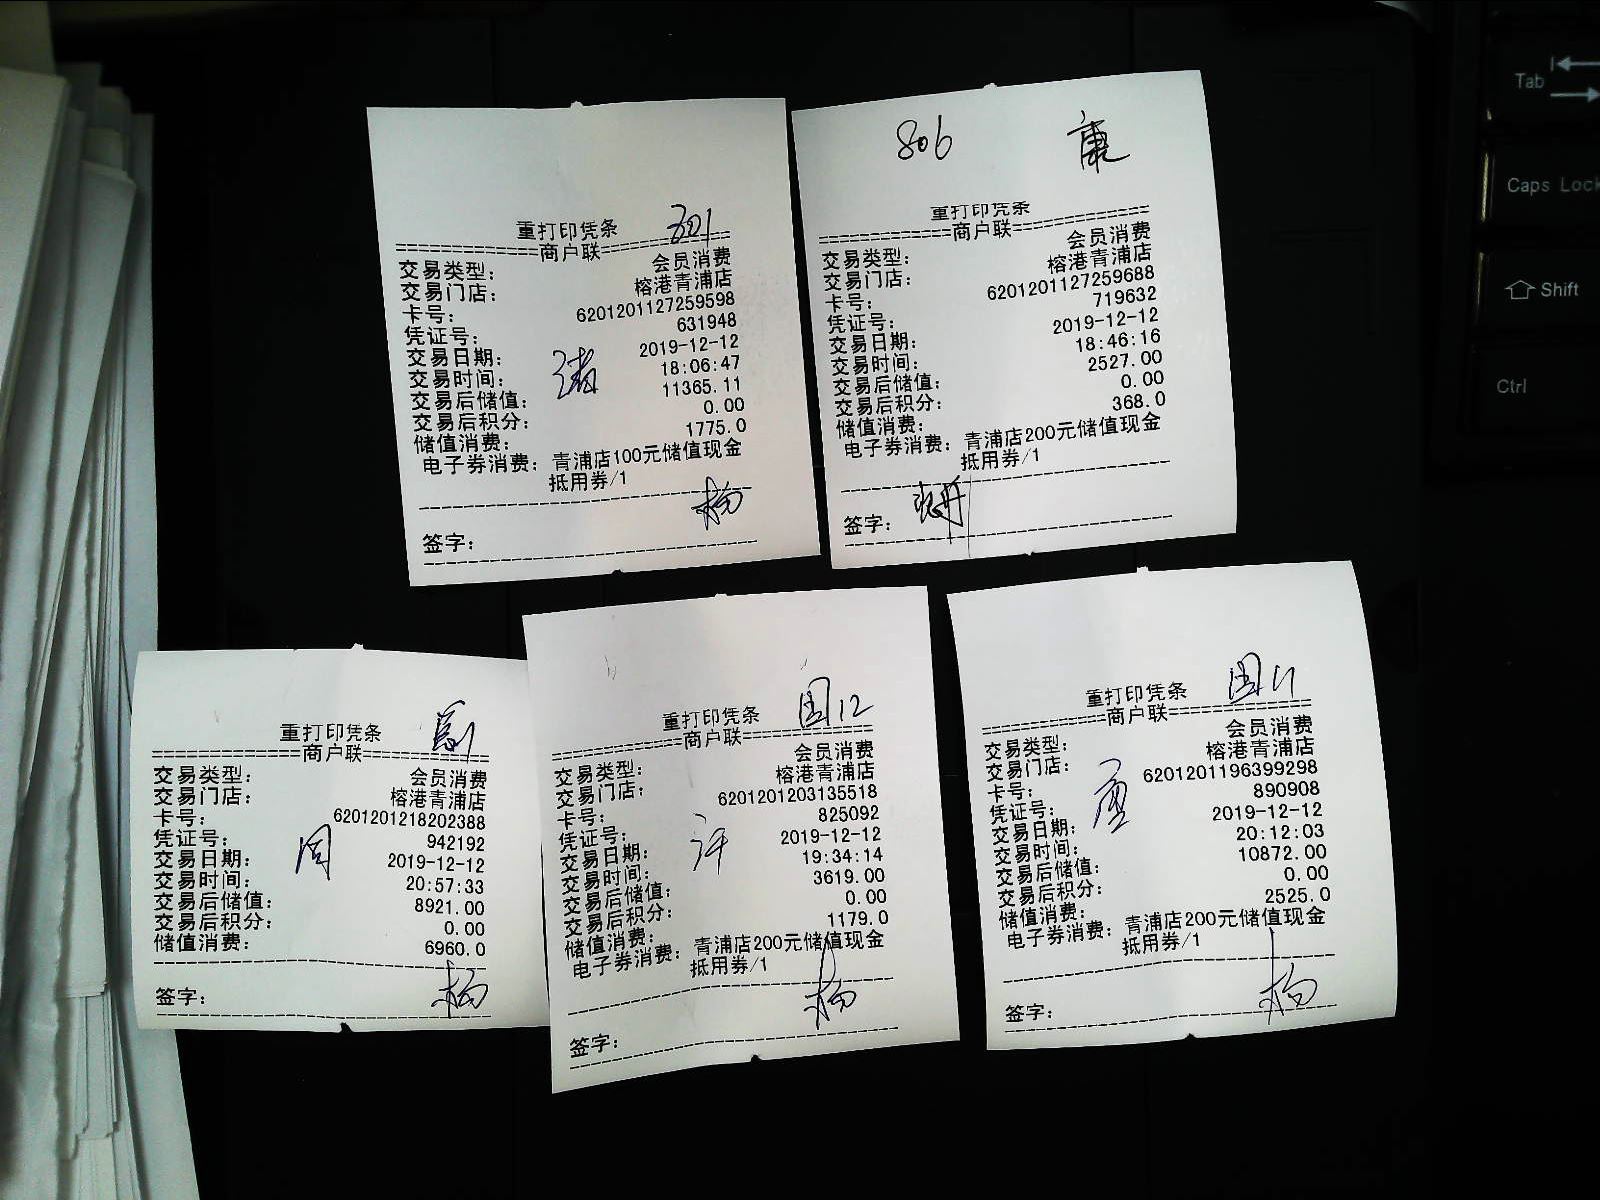 重打印凭条
301
============商户联============
交易类型： 会员消费
交易门店： 榕港青浦店
卡号： 6201201127259598
凭证号： 631948
交易日期： 2019-12-12
交易时间： 18:06:47
交易后储值： 11365.11
交易后积分： 0.00
储值消费： 1775.0
电子券消费： 青浦店100元储值现金
抵用券/1
杨
签字：
806 康
重打印凭条
============商户联============
交易类型： 会员消费
交易门店： 榕港青浦店
卡号： 6201201127259688
凭证号： 719632
交易日期： 2019-12-12
交易时间： 18:46:16
交易后储值： 2527.00
交易后积分： 0.00
储值消费： 368.0
电子券消费： 青浦店200元储值现金
抵用券/1
签字：
重打印凭条
============商户联============
交易类型： 会员消费
交易门店： 榕港青浦店
卡号： 6201201218202388
凭证号： 942192
交易日期： 2019-12-12
周
交易时间： 20:57:33
交易后储值： 8921.00
交易后积分： 0.00
储值消费： 6960.0
签字： 杨
重打印凭条 国12
============商户联============
交易类型： 会员消费
交易门店： 榕港青浦店
卡号： 6201201203135518
凭证号： 825092
交易日期： 2019-12-12
许
交易时间： 19:34:14
交易后储值： 3619.00
交易后积分： 0.00
储值消费： 1179.0
电子券消费： 青浦店200元储值现金
抵用券/1
杨
签字：
重打印凭条 国11
============商户联============
交易类型： 会员消费
交易门店： 榕港青浦店
卡号： 6201201196399298
凭证号： 890908
交易日期： 2019-12-12
交易时间： 20:12:03
交易后储值： 10872.00
交易后积分： 0.00
储值消费： 2525.0
电子券消费： 青浦店200元储值现金
抵用券/1
签字： 杨
Tab
Caps Lock
Shift
Ctrl